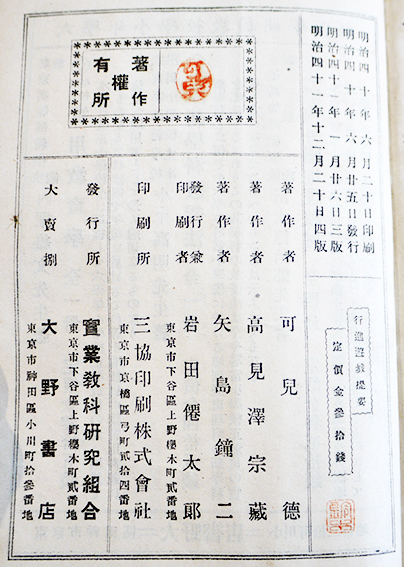 明治四十年六月二十日印刷
明治四十年六月廿五日發行
明治四十一年一月廿六日三版
明治四十一年十二月二十日四版
行進遊戲提要
定價金參拾錢
著作權所有
著作者 可兒德
著作者 高見澤宗藏
著作者 矢島鐘二
發行兼印刷者 岩田僊太郎
東京市下谷區上野櫻木町貳番地
印刷所 三協印刷株式會社
東京市京橋區弓町貳拾四番地
發行所 實業敎科研究組合
東京市下谷區上野櫻木町貳番地
大賣捌 大野書店
東京市神田區小川町拾參番地